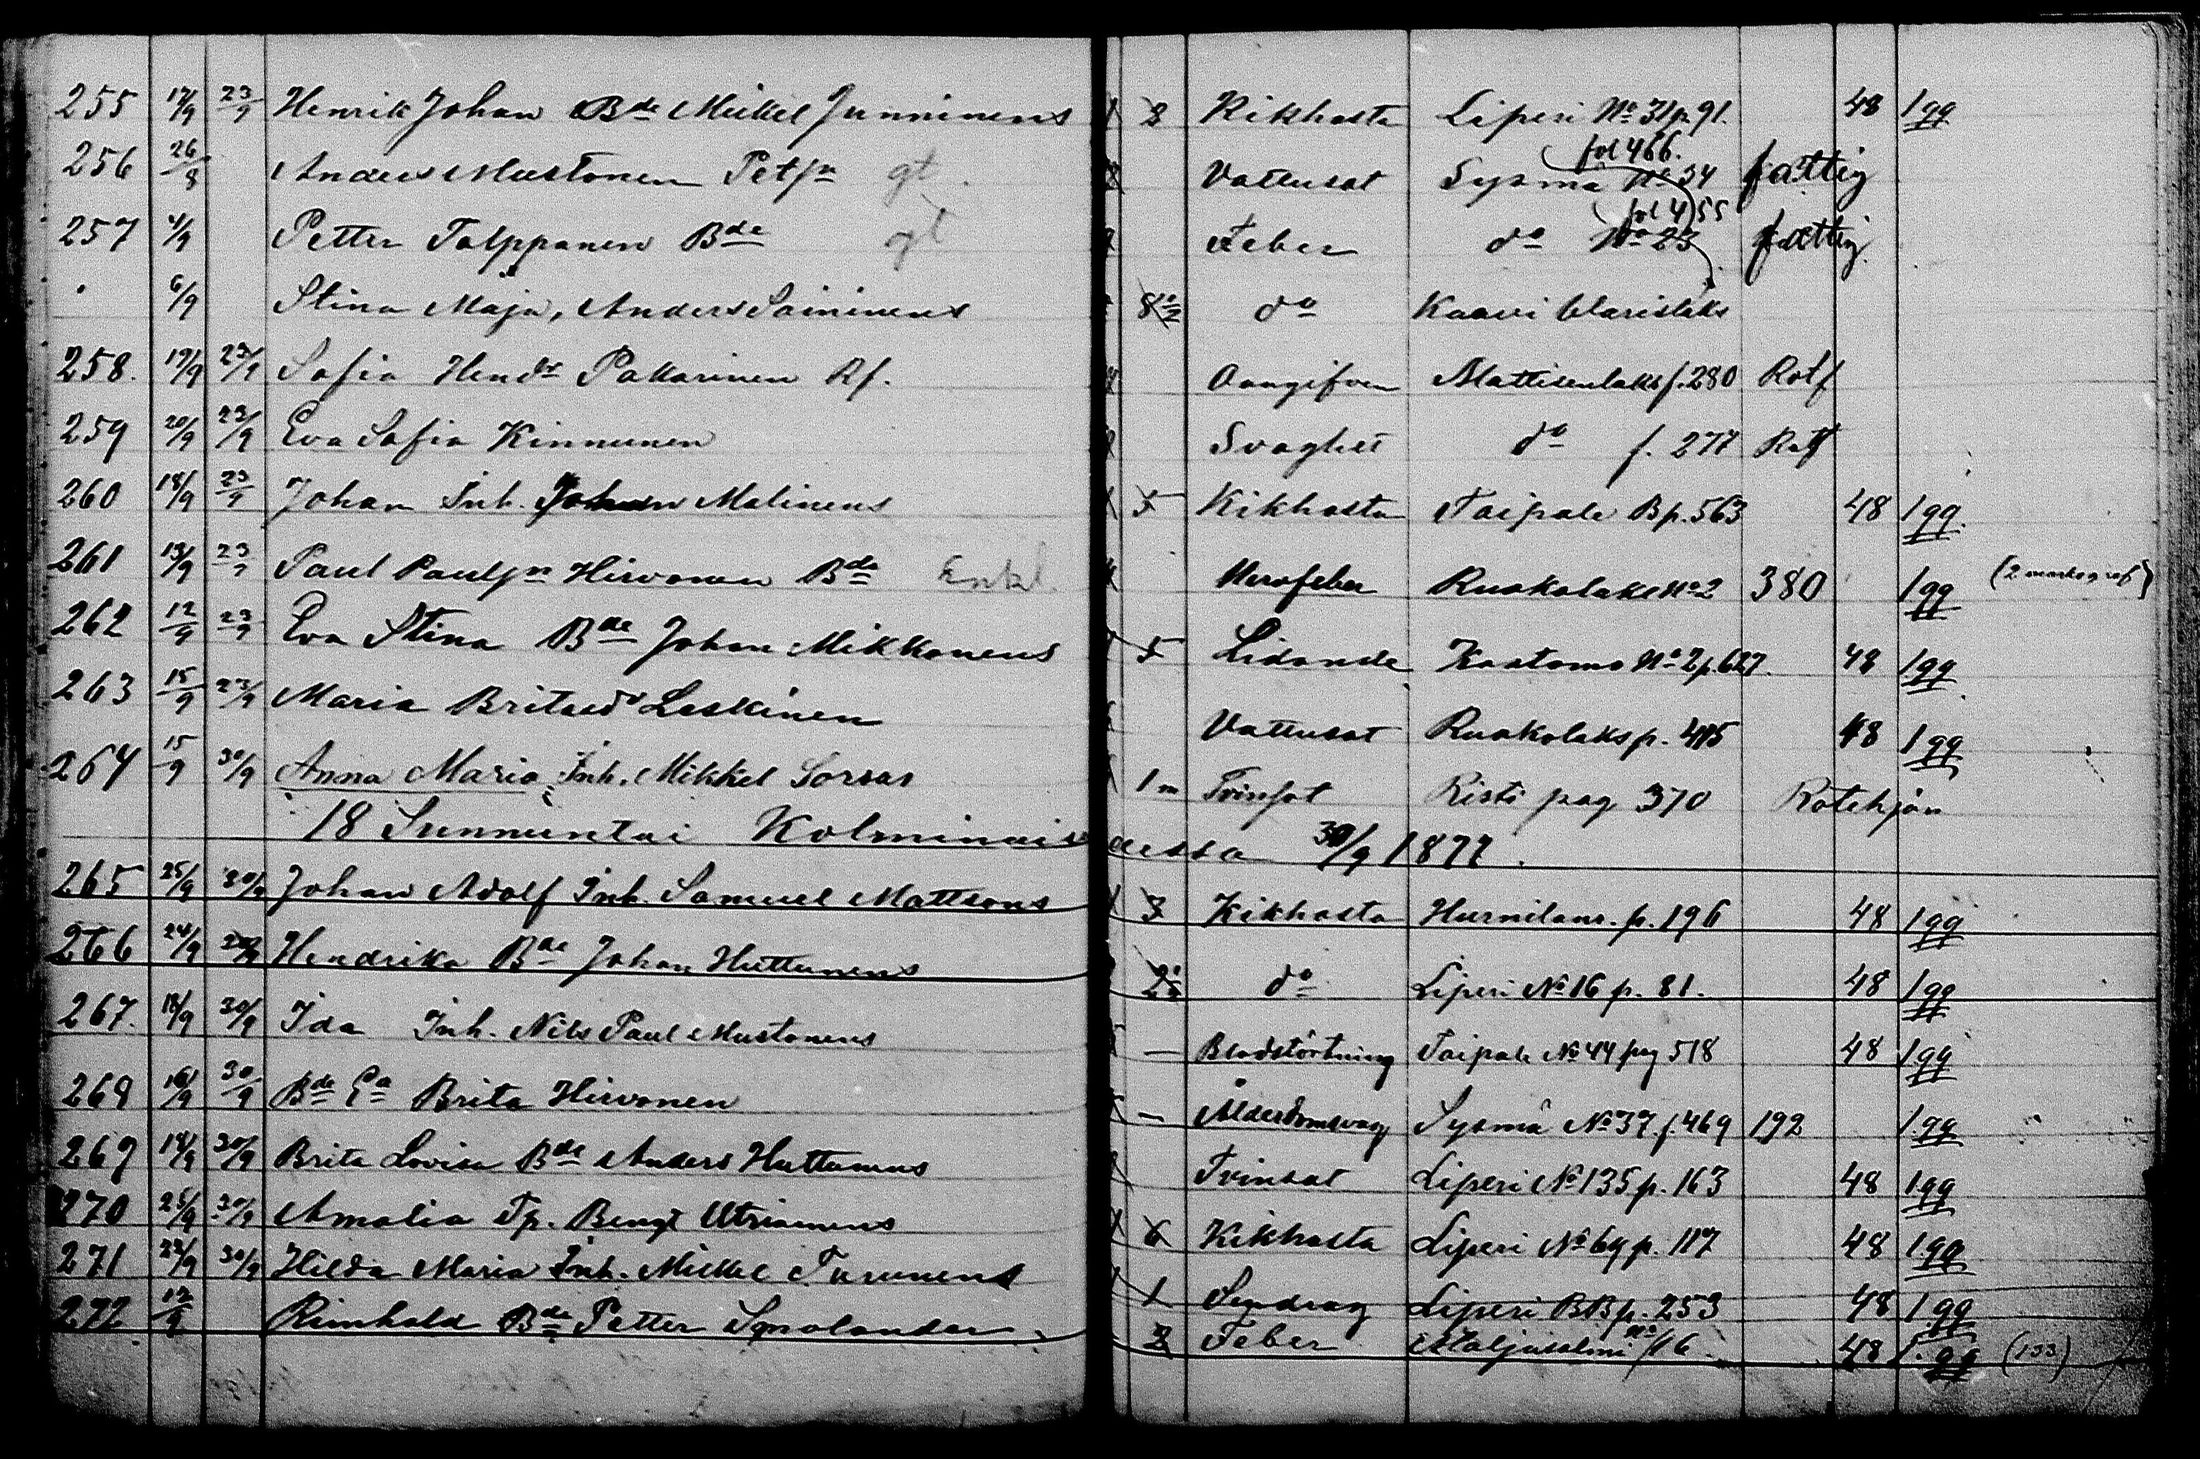 255 17/9 23/9 Henrik Johan Bde Mickel Junninens 2 Kikhosta Liperi No 31 p 91. 48 1 qq
fol 466.
256 26/8 Anders Mustonen Petsn gt Vattusot Sysmä No 34 fattig
fol 455
257 4/9 Petter Talppanen Bde gt Feber do No 23 fattig
6/9 Stina Maja, Anders Saininens do Kaavi
258. 19/9 23/9 Sofia Hendr Pakarinen Rf. Oangifven Mattisenlaks f. 280 Rotf
259 20/9 23/9 Eva Sofia Kinnunen Svaghet do f. 277 Rotf
260 18/9 23/9 Johan Inh. Johan Malinens 5 Kikhosta Taipale B p. 563 48 1 qq.
261 13/9 23/9 Paul Paulsn Hirvonen Bde Enkl. Nervfeber Ruokolaks No 2 380 1 qq
262 12/9 23/9 Eva Stina Bde Johan Mikkonens 5 Lidande Kaatamo No 2 p. 627. 48 1 qq
263 15/9 23/9 Maria Britasdr Leskinen Vattusot Ruokolaks p. 415 48 1 qq
264 15/9 30/9 Anna Maria Inh. Mikkel Sorsas 1 m Tvinsot Risti pag 370 Rotehjon
18 Sunnuntai Kolminaisuudessa 30/9 1877.
265 25/9 30/9 Johan Adolf Inh. Samuel Mattsons 3 Kikhosta p. 196 48 1 qq
266 24/9 30/9 Hendrika Bde Johan Huttunens do Liperi No 16 p. 81. 48 1 qq
267. 18/9 30/9 Ida Inh. Nils Paul Mustonens — Blodstörtning Taipale No 44 pag 518 48 1 qq
268 16/9 30/9 Bde Ea Brita Hirvonen — Ålderdomsvag Sysmä No 37. f. 469 192 1 qq
269 18/9 30/9 Brita Lovisa Bde Anders Huttunens Tvinsot Liperi No 135 p. 163 48 1 qq
270 25/9 30/9 Amalia Tp. Bengt Utriainens 6 Kikhosta Liperi No 69 p. 117 48 1 qq
271 22/9 30/9 Hilda Maria Inh. Mickel Turunens 1 Liperi BB p. 253 48 1 qq
272 12/9 Rinhold Bde Petter Smolander 3 Feber No 16. 48 1. qq (133)